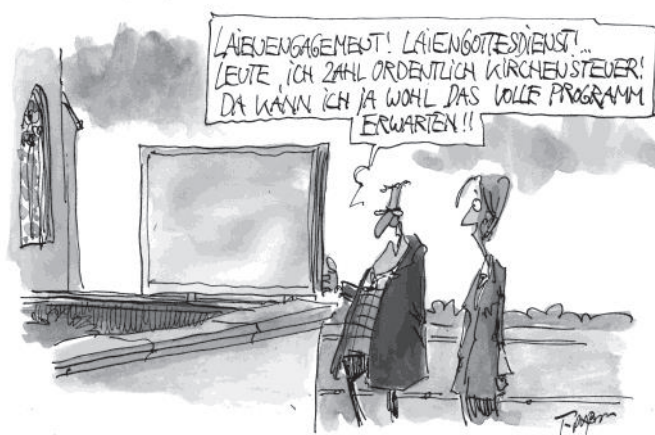 LAIENENGAGEMENT! LAIENGOTTESDIENST!...
LEUTE, ICH ZAHL ORDENTLICH KIRCHENSTEUER!
DA KANN ICH JA WOHL DAS VOLLE PROGRAMM
ERWARTEN!!